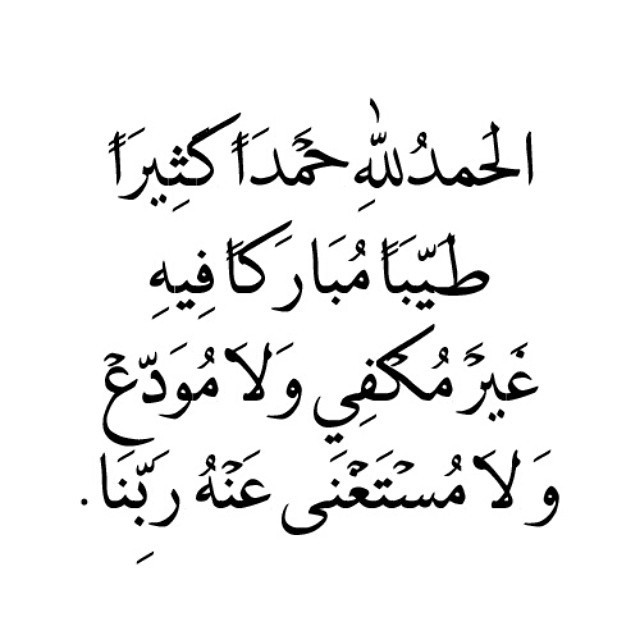 الحَمدُ للهِ حَمْدَاً كَثِيرَاً
طَيِّبَاً مُبَارَكَاً فِيهِ
غَيرَ مُكْفِي وَلَا مُوَدّعْ
وَلَا مُسْتَغْنَى عَنْهُ رَبِّنَا.